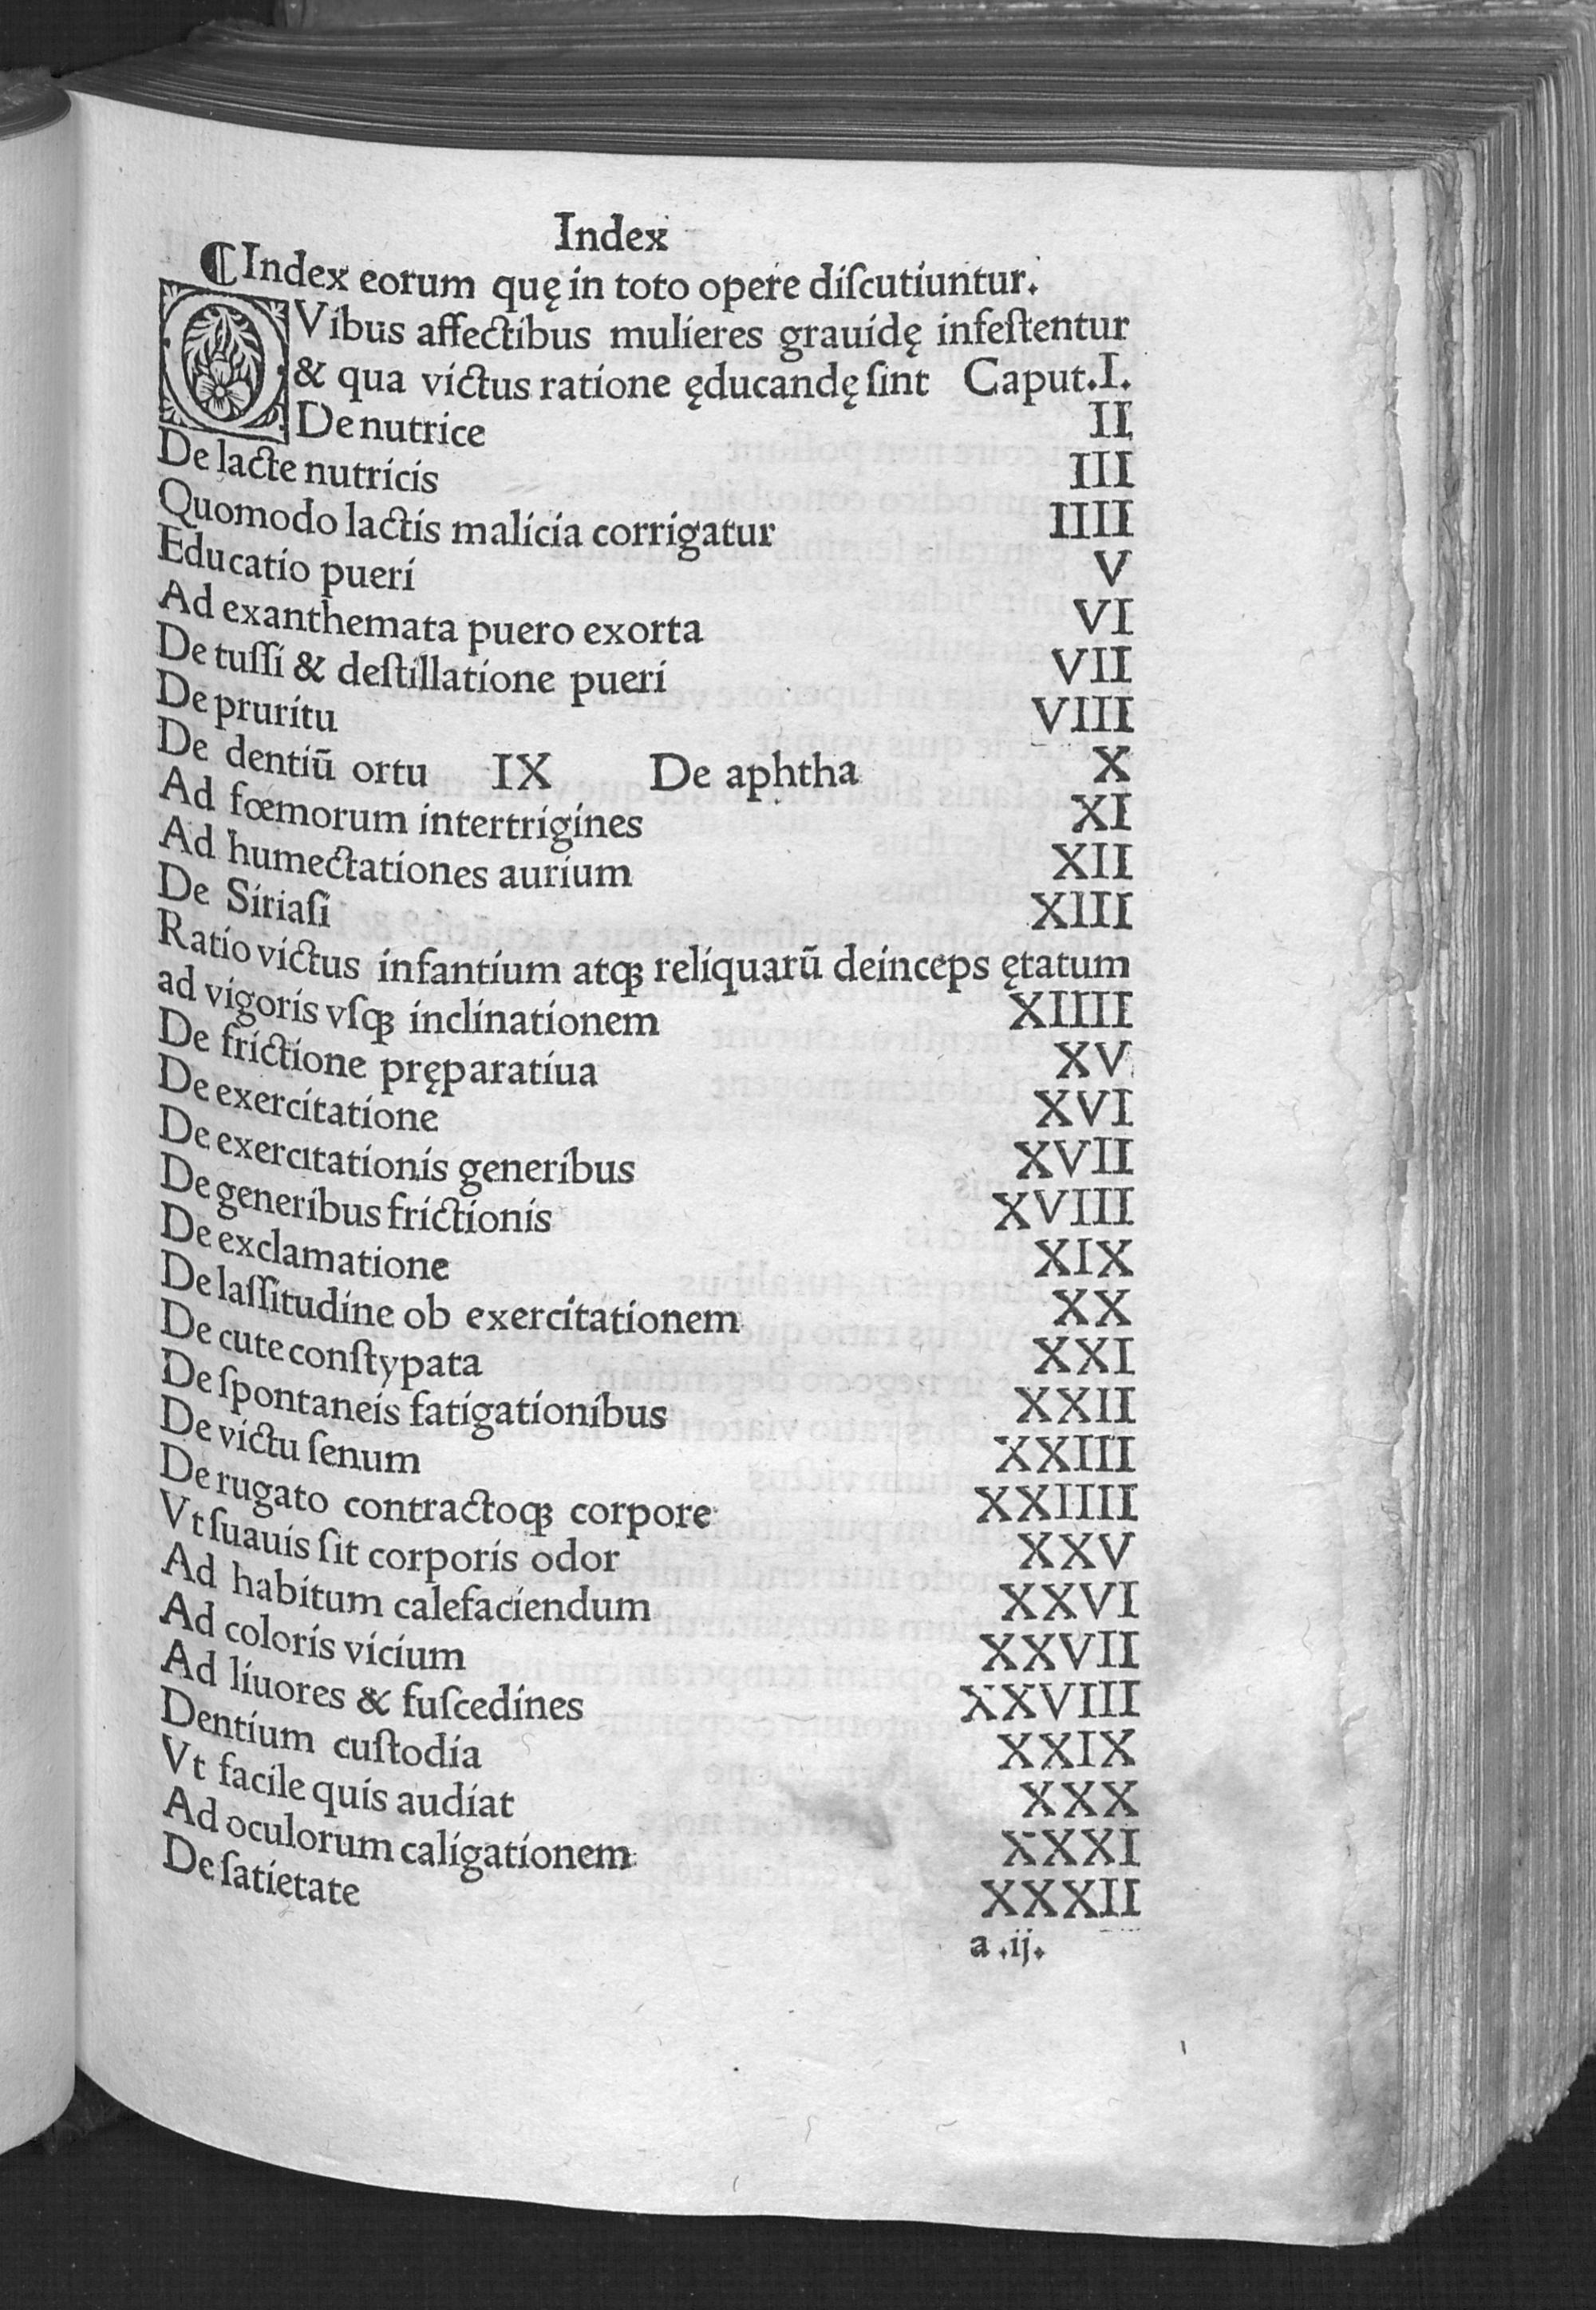 Index
⸿Index eorum quę in toto opere diſcutiuntur.
QVibus affectibus mulieres grauidę infeſtentur
& qua victus ratione ęducandę ſint Caput.I.
De nutrice II
De lacte nutricis III
Quomodo lactis malicia corrigatur IIII
Educatio pueri V
Ad exanthemata puero exorta VI
De tuſſi & deſtillatione pueri VII
De pruritu VIII
De dentiū ortu IX De aphtha X
Ad fœmorum intertrigines XI
Ad humectationes aurium XII
De Siriaſi XIII
Ratio victus infantium atqꝫ reliquarū deinceps ętatum
ad vigoris vſqꝫ inclinationem XIIII
De frictione pręparatiua XV
De exercitatione XVI
De exercitationis generibus XVII
De generibus frictionis XVIII
De exclamatione XIX
De laſſitudine ob exercitationem XX
De cute conſtypata XXI
De ſpontaneis fatigationibus XXII
De victu ſenum XXIII
De rugato contractoqꝫ corpore XXIIII
Vt ſuauis ſit corporis odor XXV
Ad habitum calefaciendum XXVI
Ad coloris vicium XXVII
Ad liuores & fuſcedines XXVIII
Dentium cuſtodia XXIX
Vt facile quis audiat XXX
Ad oculorum caligationem XXXI
De ſatietate XXXII
a .ij.